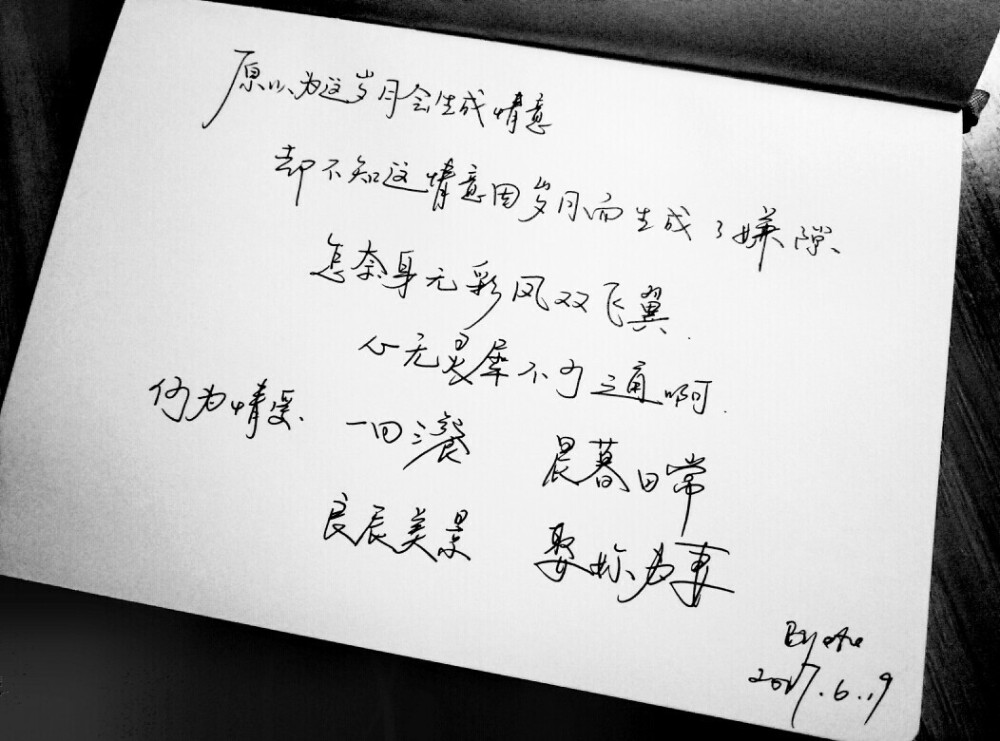 原以为这岁月会生成情意
却不知这情意因岁月而生成了嫌隙、
怎奈身无彩风双飞翼.
心无灵犀不可之通啊.
何为情爱、 一日三餐 晨暮日常
良辰美景 娶妳为妻
By
2017.6.19